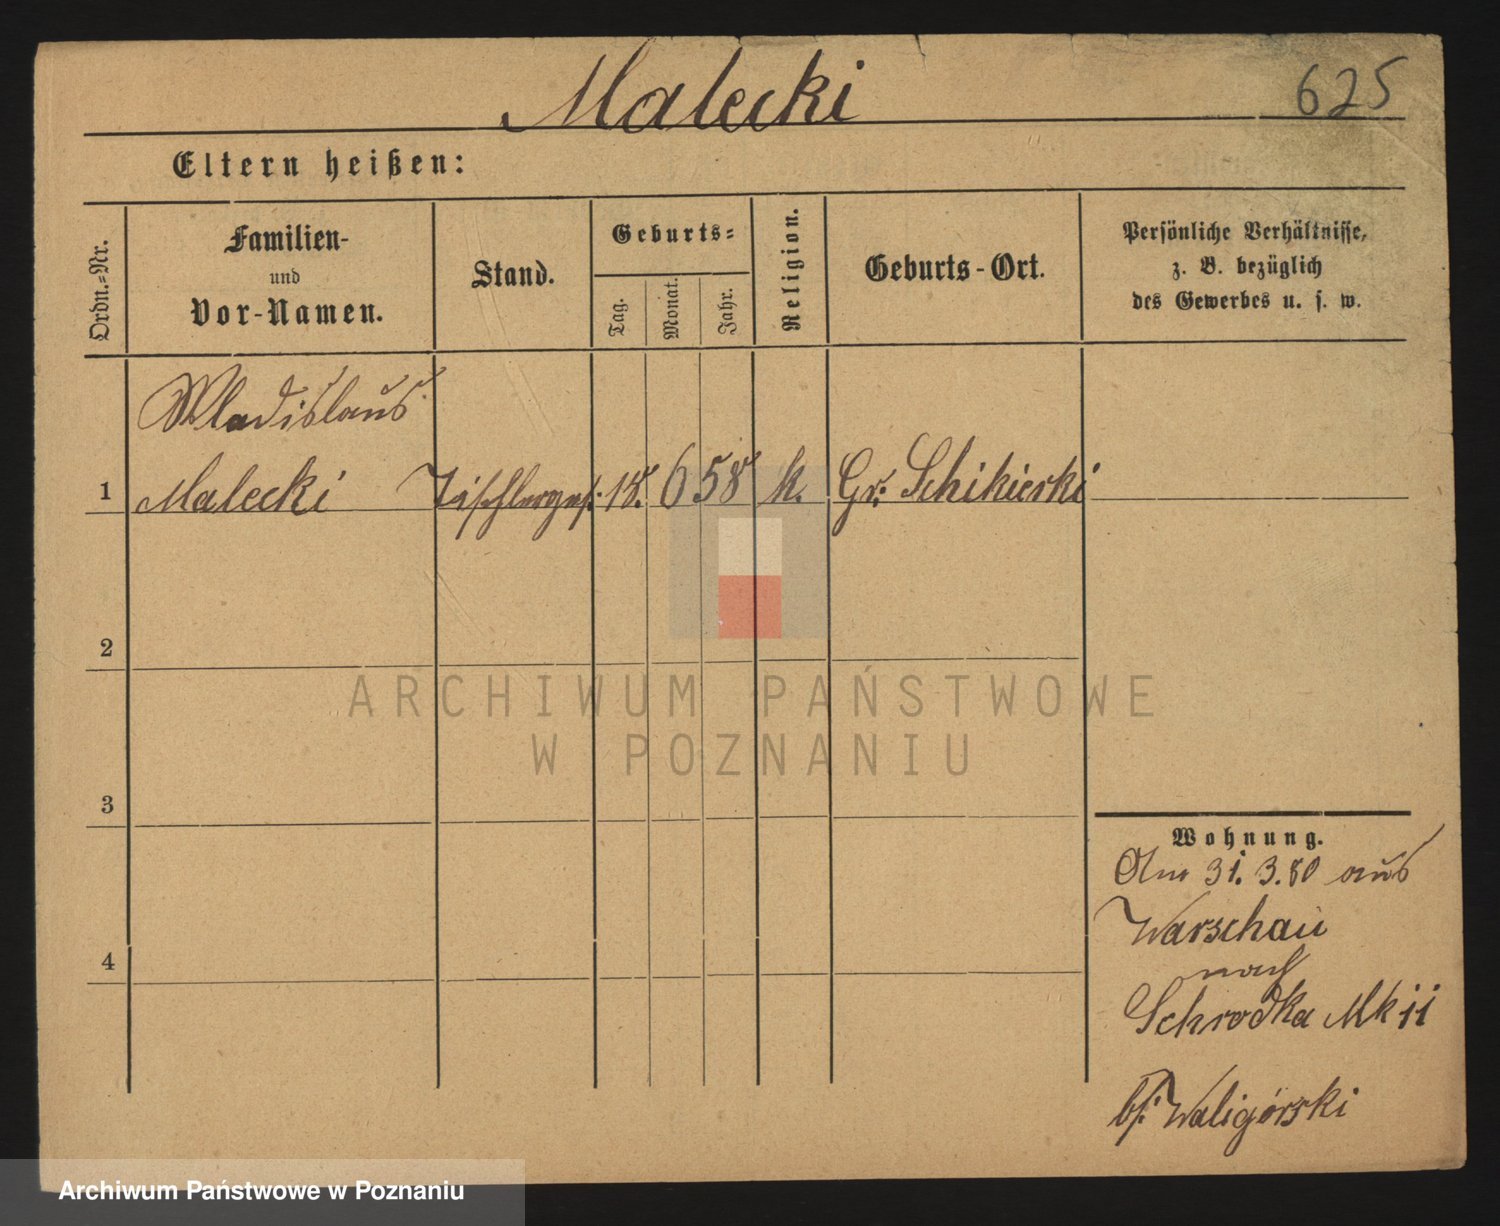 Malecki
625
Eltern heißen:
Ordn.-Nr.
Familien-
und
Vor-Namen.
Stand.
Geburts-
Tag.
Monat.
Jahr.
Religion.
Geburts-Ort.
Persönliche Verhältnisse,
z. B. bezüglich
des Gewerbes u. s. w.
Wladislaus
1 Malecki Tischlerges. 18. 6 58 k. Gr. Schikierki
2
3
4
Wohnung.
Am 31. 3. 80 aus
Warschau
nach
Schrodka Mk 11
bei Waligórski
ARCHIWUM PAŃSTWOWE
W POZNANIU
Archiwum Państwowe w Poznaniu